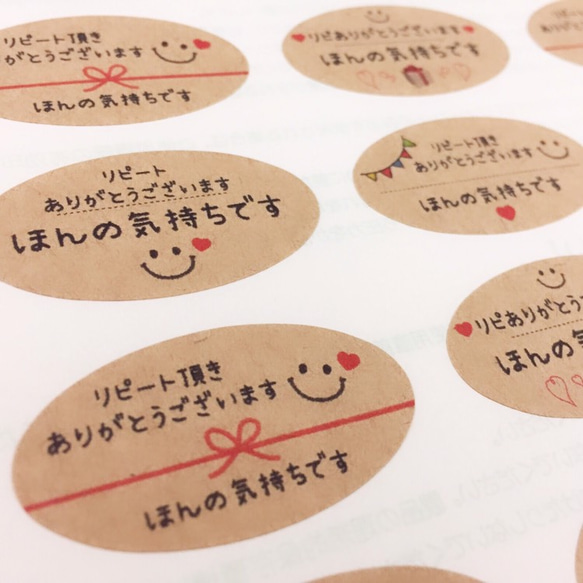 リピート頂き
がとうございます
ほんの気持ちです
リピありがとうございます
ほんの気持ちです
リピート
ありがとうございます
ほんの気持ちです
リピート頂き
ありがとうございます
ほんの気持ちです
リピート頂き
ありがとうございます
ほんの気持ちです
リピありがとう
ほんの気